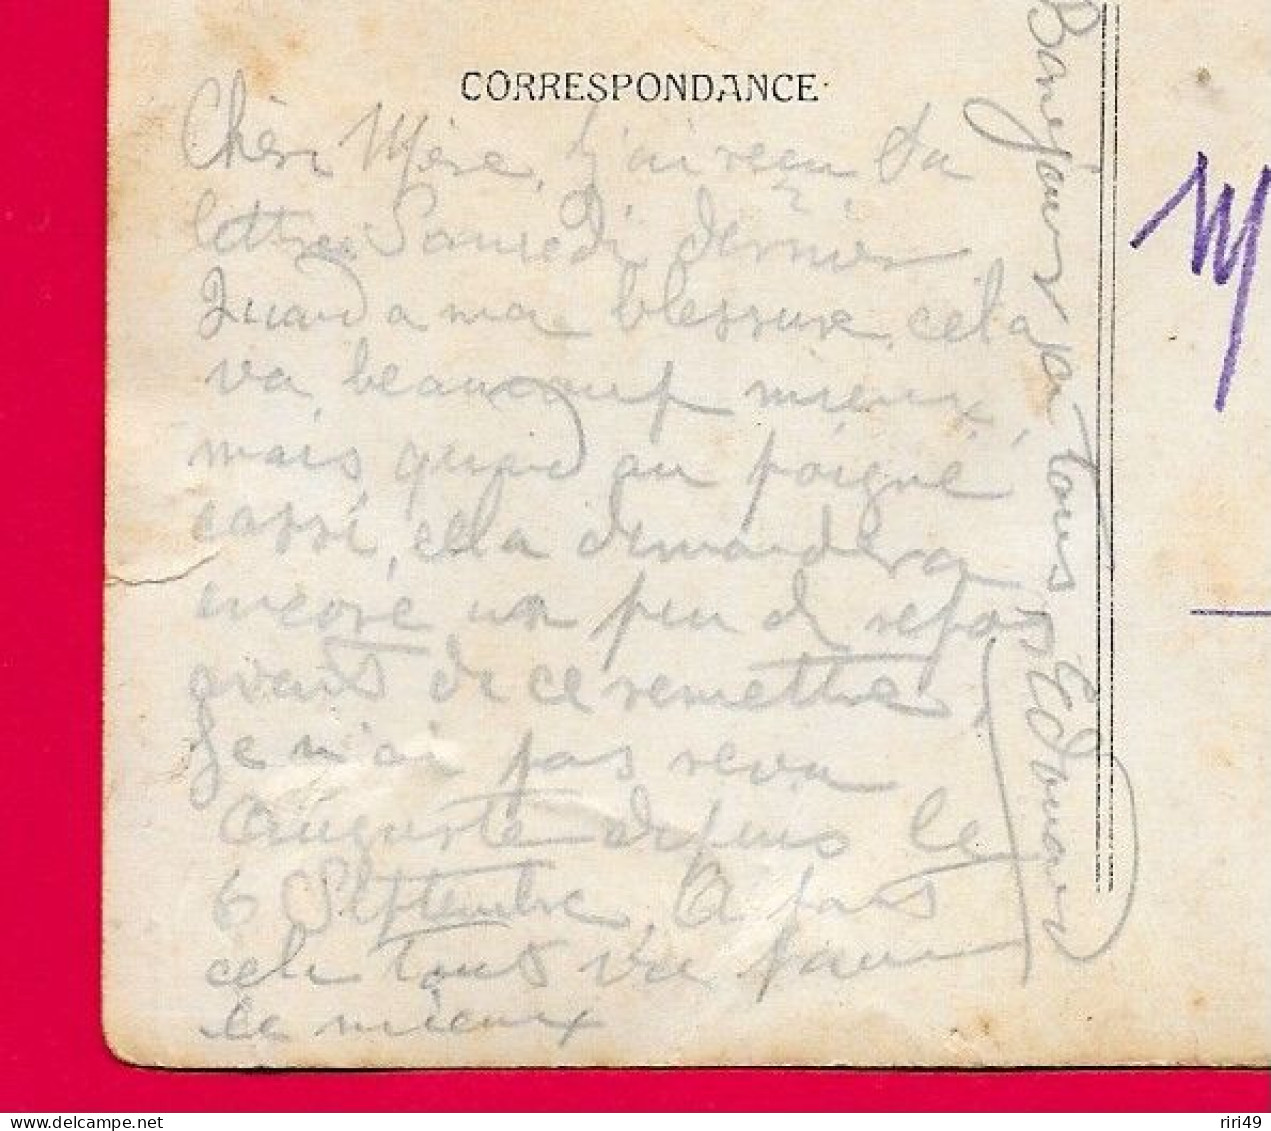 CORRESPONDANCE
Chère Mère, j'ai reçu ta
lettre Samedi dernier
Quand a ma blessure, cela
va beaucoup mieux,
mais quand au poigné
cassé, cela demandera
encore un peu de repos
avant de ce remettre,
Je n'ai pas revu
Auguste depuis le
6 Septembre, A part
cela tout vas pour
le mieux
Bonjours a tous
Edouard
M
riri49